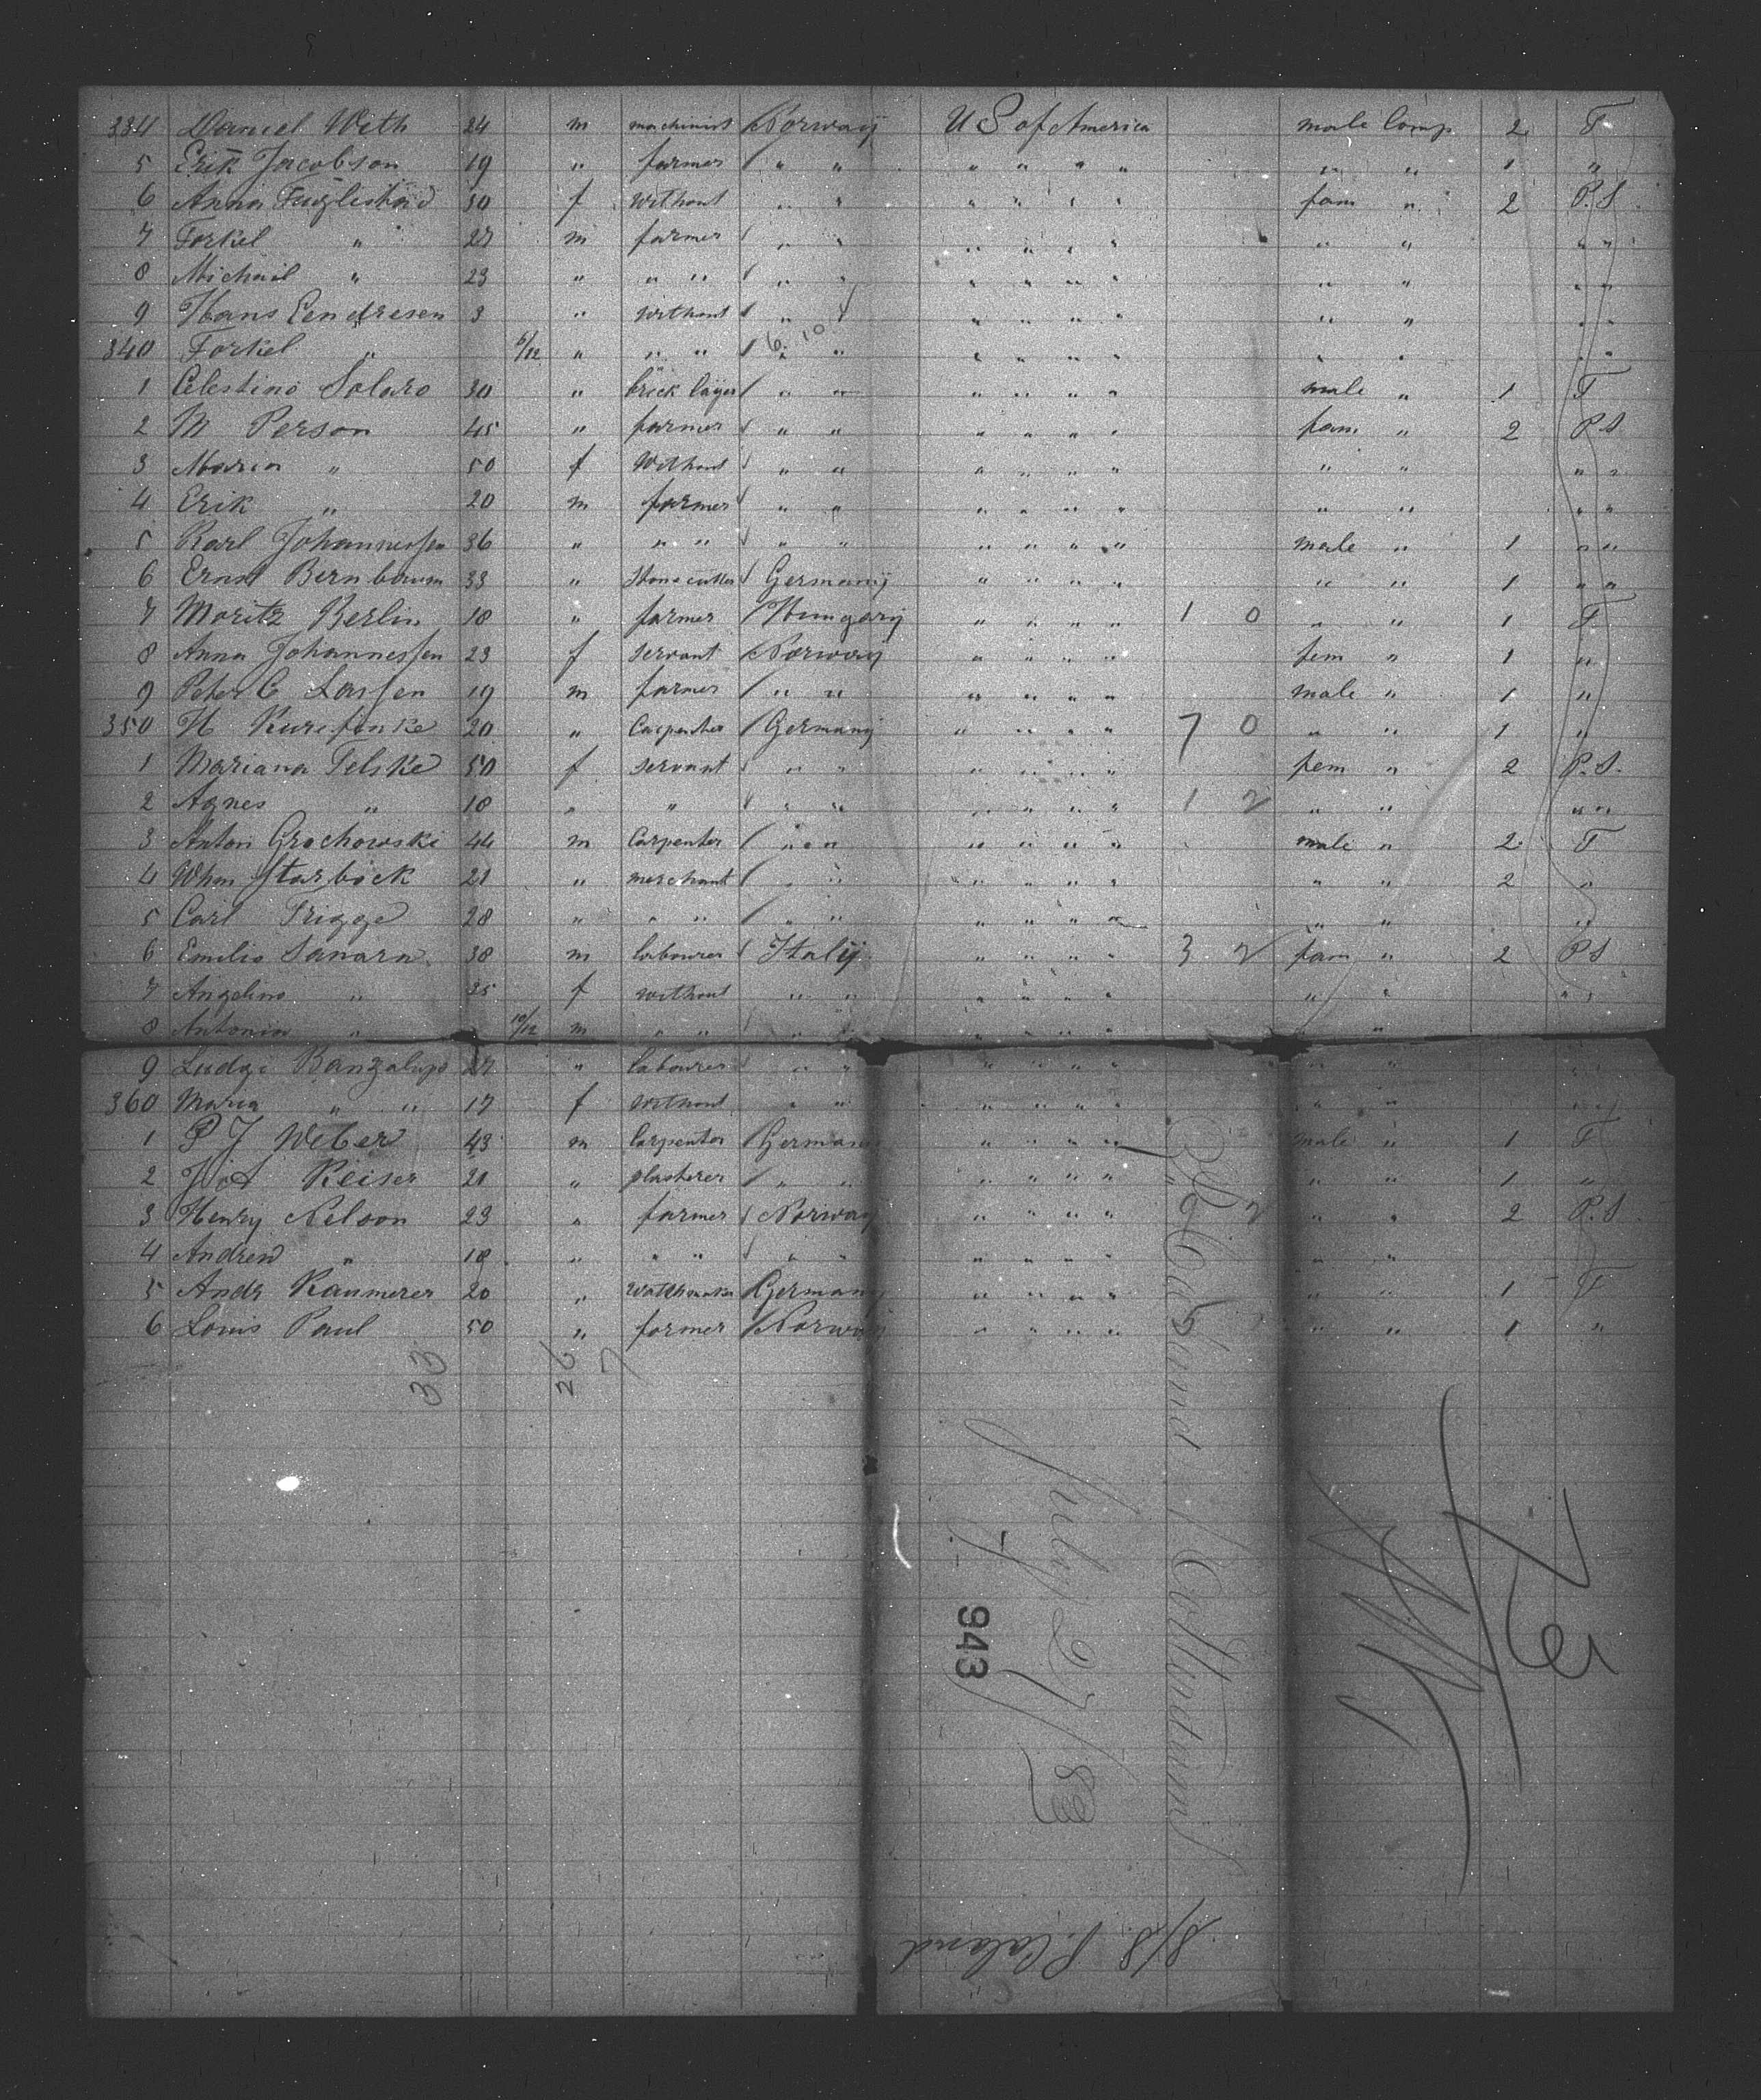 334 Daniel Weth 24 m machinist Norway U S of America male comp 2 T
5 Erik Jacobson 19 " farmer " " " " " " " " 1 "
6 Anna Fuglestad 30 f without " " " " " " fam " 2 P.S.
7 Torkel " 27 m farmer " " " " " " " " " "
8 Michail " 23 " " " " " " " " " " " " "
9 Hans Eendresen 3 " without " " " " " " " " "
340 Torkel " 6/12 " " " " " " " " " " " " "
6. 10.
1 Celestino Solaro 30 " brick layer " " " " " " male " 1 T
2 M Person 45 " farmer " " " " " " fam " 2 P S
3 Maria " 50 f Without " " " " " " " " " "
4 Erik " 20 m farmer " " " " " " " " " "
5 Karl Johannessen 36 " " " " " " " " " male " 1 " "
6 Ernst Bernbaum 33 " Stonecutter Germany " " " " " " 1 " "
7 Moritz Berlin 18 " farmer Hungary " " " " 1 0 " " 1 T
8 Anna Johannessen 23 f servant Norway " " " " fem " 1 "
9 Peter C Lassen 19 m farmer " " " " " " male " 1 "
350 H 20 " Carpenter Germany " " " " 7 0 " " 1 "
1 Mariana Telske 50 f servant " " " " " " fem " 2 P.S.
2 Agnes " 18 " " " " " " " " 1 2 " " " "
3 Anton Grochowski 44 m Carpenter " " " " " " " male " 2 T
4 Whm Starbock 21 " merchant " " " " " " " " 2 "
5 Carl Trigge 28 " " " " " " " " " " " "
6 Emilio Sanara 38 m labourer Italy " " " " 3 2 fam " 2 P S
7 Angelina " 25 f without " " " " " " " " " "
8 Antonia " 10/12 m " " " " " " " " " "
9 Ludgi Banzalupo 27 " labourer " " " " " " " " " "
360 Maria " " 17 f without " " " " " " " " " "
1 P J Weber 43 m Carpenter Germany " " " " male " 1 T
2 J A Keiser 21 " plasterer " " " " " " " " 1 "
3 Henry Nelson 23 " farmer Norway " " " " 6 2 " " 2 P.S.
4 Andrew " 18 " " " " " " " " " " "
5 Andr Kammerer 20 " watchmaker Germany " " " " " " 1 T
6 Louis Paul 50 " farmer Norway " " " " 5 " " 1 "
33
26
7
P Caland / Rotterdam
July 27/83
943
S/S P. Caland